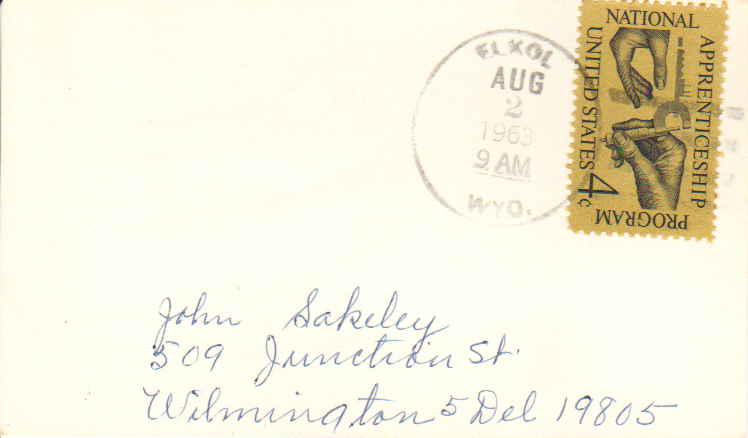 ELKOL
AUG
2
1963
9 AM
WYO.
NATIONAL
APPRENTICESHIP
PROGRAM
UNITED STATES
4¢
John Sakeley
509 Junction St.
Wilmington 5 Del 19805